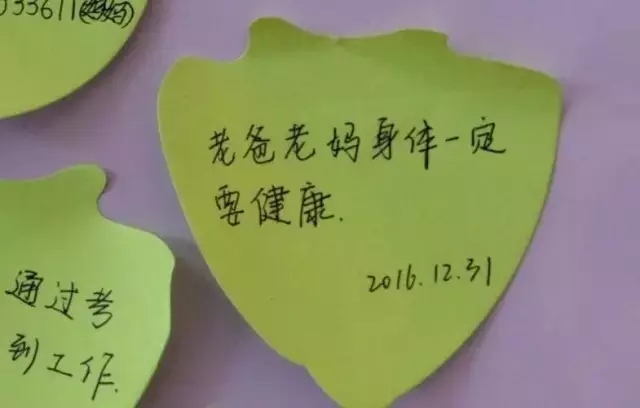 033611(妈妈)
老爸老妈身体一定
要健康.
2016.12.31
通过考
到工作.